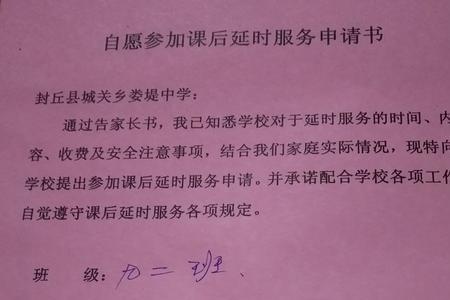 自愿参加课后延时服务申请书
封丘县城关乡娄堤中学：
通过告家长书，我已知悉学校对于延时服务的时间、内
容、收费及安全注意事项，结合我们家庭实际情况，现特向
学校提出参加课后延时服务申请。并承诺配合学校各项工作
自觉遵守课后延时服务各项规定。
班 级：九二班、